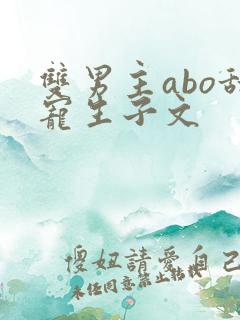 雙男主abo甜
寵生子文
傻妞請愛自己
未經同意禁止轉載